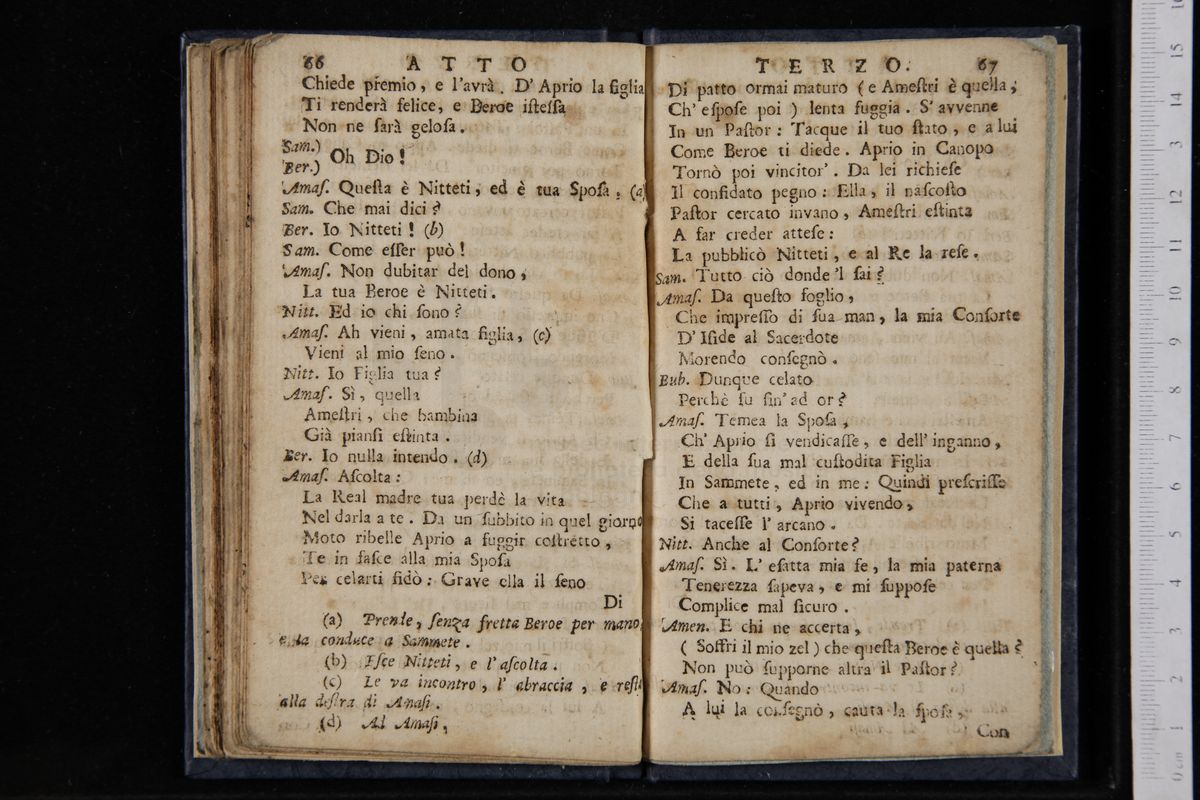 66 ATTO
Chiede premio, e l'avrà. D'Aprio la figlia
Ti renderà felice, e Beroe iſteſſa
Non ne ſarà geloſa.
Sam.)
Ber.) Oh Dio!
Amaſ. Queſta è Nitteti, ed è tua Spoſa. (a)
Sam. Che mai dici?
Ber. Io Nitteti! (b)
Sam. Come eſſer può!
Amaſ. Non dubitar del dono,
La tua Beroe è Nitteti.
Nitt. Ed io chi ſono?
Amaſ. Ah vieni, amata figlia, (c)
Vieni al mio ſeno.
Nitt. Io Figlia tua?
Amaſ. Sì, quella
Ameſtri, che bambina
Già pianſi eſtinta.
Ber. Io nulla intendo. (d)
Amaſ. Aſcolta:
La Real madre tua perdè la vita
Nel darla a te. Da un ſubbito in quel giorno
Moto ribelle Aprio a fuggir coſtretto,
Te in faſce alla mia Spoſa
Per celarti fidò: Grave ella il ſeno
Di
(a) Prende, ſenza fretta Beroe per mano,
e la conduce a Sammete.
(b) Eſce Nitteti, e l'aſcolta.
(c) Le va incontro, l'abraccia, e reſta
alla deſtra di Amaſi.
(d) Ad Amaſi,
TERZO. 67
Di patto ormai maturo (e Ameſtri è quella,
Ch'eſpoſe poi) lenta fuggia. S'avvenne
In un Paſtor: Tacque il tuo ſtato, e a lui
Come Beroe ti diede. Aprio in Canopo
Tornò poi vincitor'. Da lei richieſe
Il confidato pegno: Ella, il naſcoſto
Paſtor cercato invano, Ameſtri eſtinta
A far creder atteſe:
La pubblicò Nitteti, e al Re la reſe.
Sam. Tutto ciò donde 'l ſai?
Amaſ. Da queſto foglio,
Che impreſſo di ſua man, la mia Conſorte
D'Iſide al Sacerdote
Morendo conſegnò.
Bub. Dunque celato
Perchè fu ſin'ad or?
Amaſ. Temea la Spoſa,
Ch'Aprio ſi vendicaſſe, e dell'inganno,
E della ſua mal cuſtodita Figlia
In Sammete, ed in me: Quindi preſcriſſe
Che a tutti, Aprio vivendo,
Si taceſſe l'arcano.
Nitt. Anche al Conſorte?
Amaſ. Sì. L'eſatta mia fe, la mia paterna
Tenerezza ſapeva, e mi ſuppoſe
Complice mal ſicuro.
Amen. E chi ne accerta,
(Soffri il mio zel) che queſta Beroe è quella?
Non può ſupporne altra il Paſtor?
Amaſ. No: Quando
A lui la conſegnò, cauta la ſpoſa,
Con
0 cm 1 2 3 4 5 6 7 8 9 10 11 12 13 14 15 16